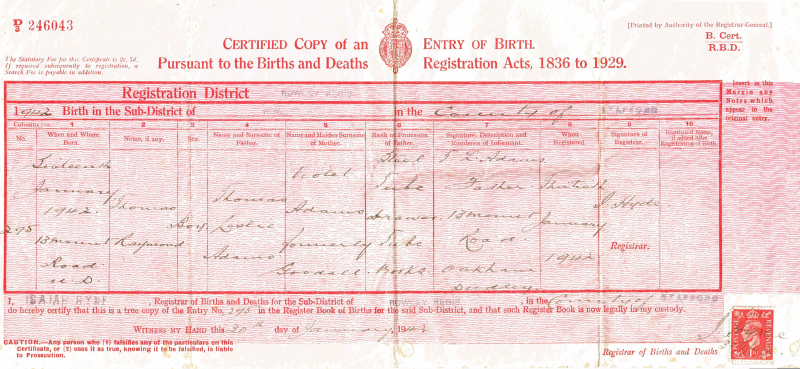 D/3 246043
[Printed by Authority of the Registrar-General.]
B. Cert.
R.B.D.
CERTIFIED COPY of an ENTRY OF BIRTH.
The Statutory Fee for this Certificate is 2s. 7d.
If required subsequently to registration, a
Search Fee is payable in addition.
Pursuant to the Births and Deaths Registration Acts, 1836 to 1929.
Registration District ROWLEY REGIS
1942 Birth in the Sub-District of in the County of STAFFORD
Insert in this
Margin any
Notes which
appear in the
original entry.
Columns:— 1 2 3 4 5 6 7 8 9 10
No. When and Where Born. Name, if any. Sex. Name and Surname of Father. Name and Maiden Surname of Mother. Rank or Profession of Father. Signature, Description and Residence of Informant. When Registered. Signature of Registrar. Baptismal Name, if added after Registration of Birth.
295
Sixteenth
January
1942.
13 Mount
Road
U.D.
Thomas
Raymond
Boy
Thomas
Leslie
Adams
Violet
Adams
formerly
Goodall
Steel
Tube
Drawer
Tube
Works
T. L. Adams
Father
13 Mount
Road
Oakham
Dudley
Thirtieth
January
1942
I. Hyde
Registrar.
I, ISAIAH HYDE, Registrar of Births and Deaths for the Sub-District of ROWLEY REGIS, in the County of STAFFORD
do hereby certify that this is a true copy of the Entry No. 295 in the Register Book of Births for the said Sub-District, and that such Register Book is now legally in my custody.
WITNESS MY HAND this 30th day of January, 1942
CAUTION.—Any person who (1) falsifies any of the particulars on this
Certificate, or (2) uses it as true, knowing it to be falsified, is liable
to Prosecution.
Registrar of Births and Deaths
POSTAGE
REVENUE
1D